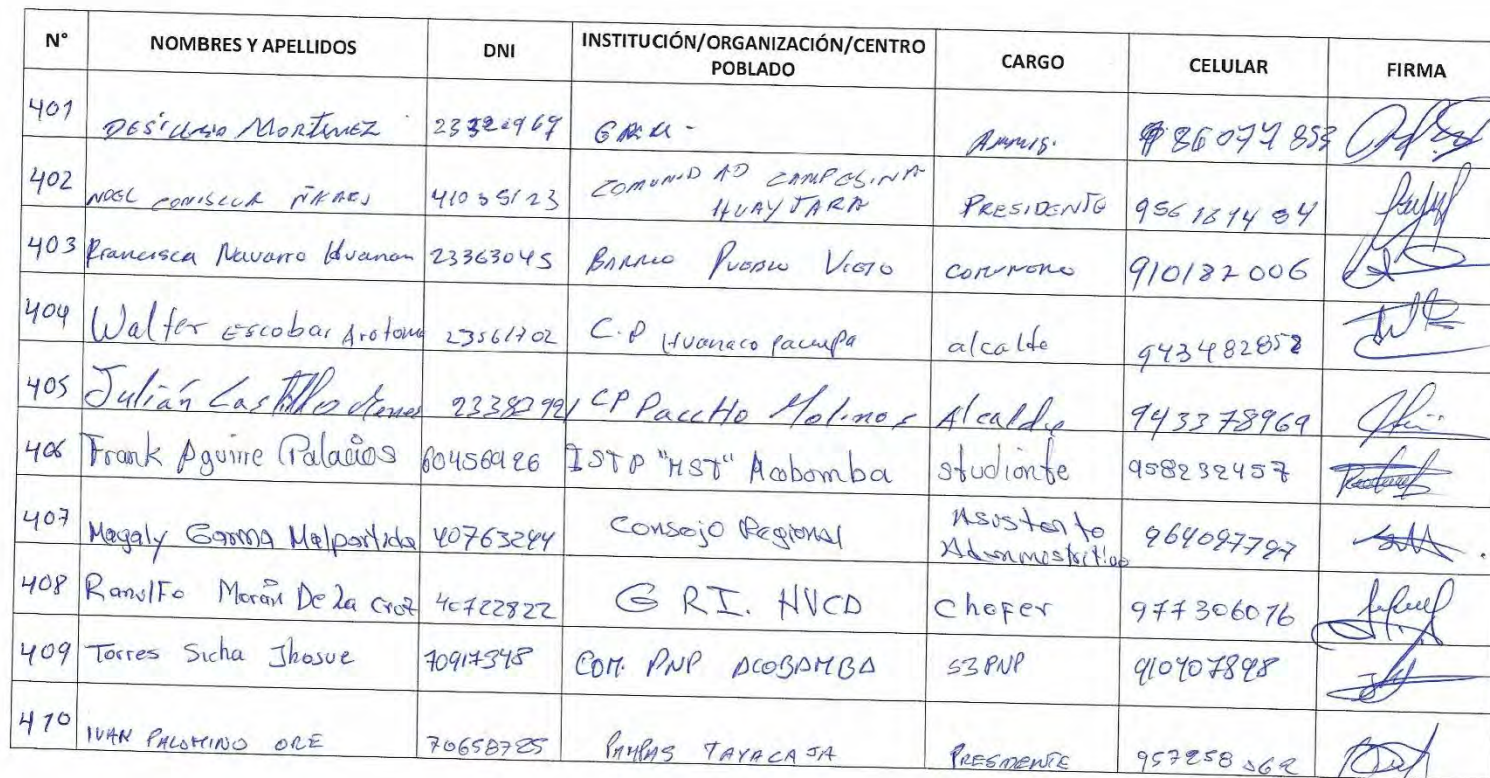 N° NOMBRES Y APELLIDOS DNI INSTITUCIÓN/ORGANIZACIÓN/CENTRO POBLADO CARGO CELULAR FIRMA
401 23321969
402 COMUNIDAD CAMPESINA HUAYTARA PRESIDENTE
403 Francisca Navarro Huaman 23363045 BARRIO PUEBLO VIEJO 910182006
404 Walter Escobar 23561702 C.P alcalde 943482852
405 Julián Castillo CP Paccho Molinos Alcalde 943378969
406 Frank Aguirre Palacios 60456926 ISTP "HST" Acobamba studiante 958232457
407 Magaly Garma Malpartida 40763244 Consejo Regional Asistente Administrativo 964097797
408 Ranulfo Morán De La Cruz 40722822 G RI. HVCA Chofer 977306076
409 Torres Sicha Jhosue 70917348 COM. PNP ACOBAMBA S3 PNP 910407898
410 IVAN PALOMINO ORE 70658785 PAMPAS TAYACAJA PRESIDENTE